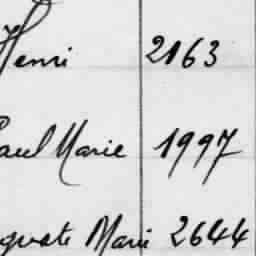 Henri 2163
Paul Marie 1997
Auguste Marie 2644